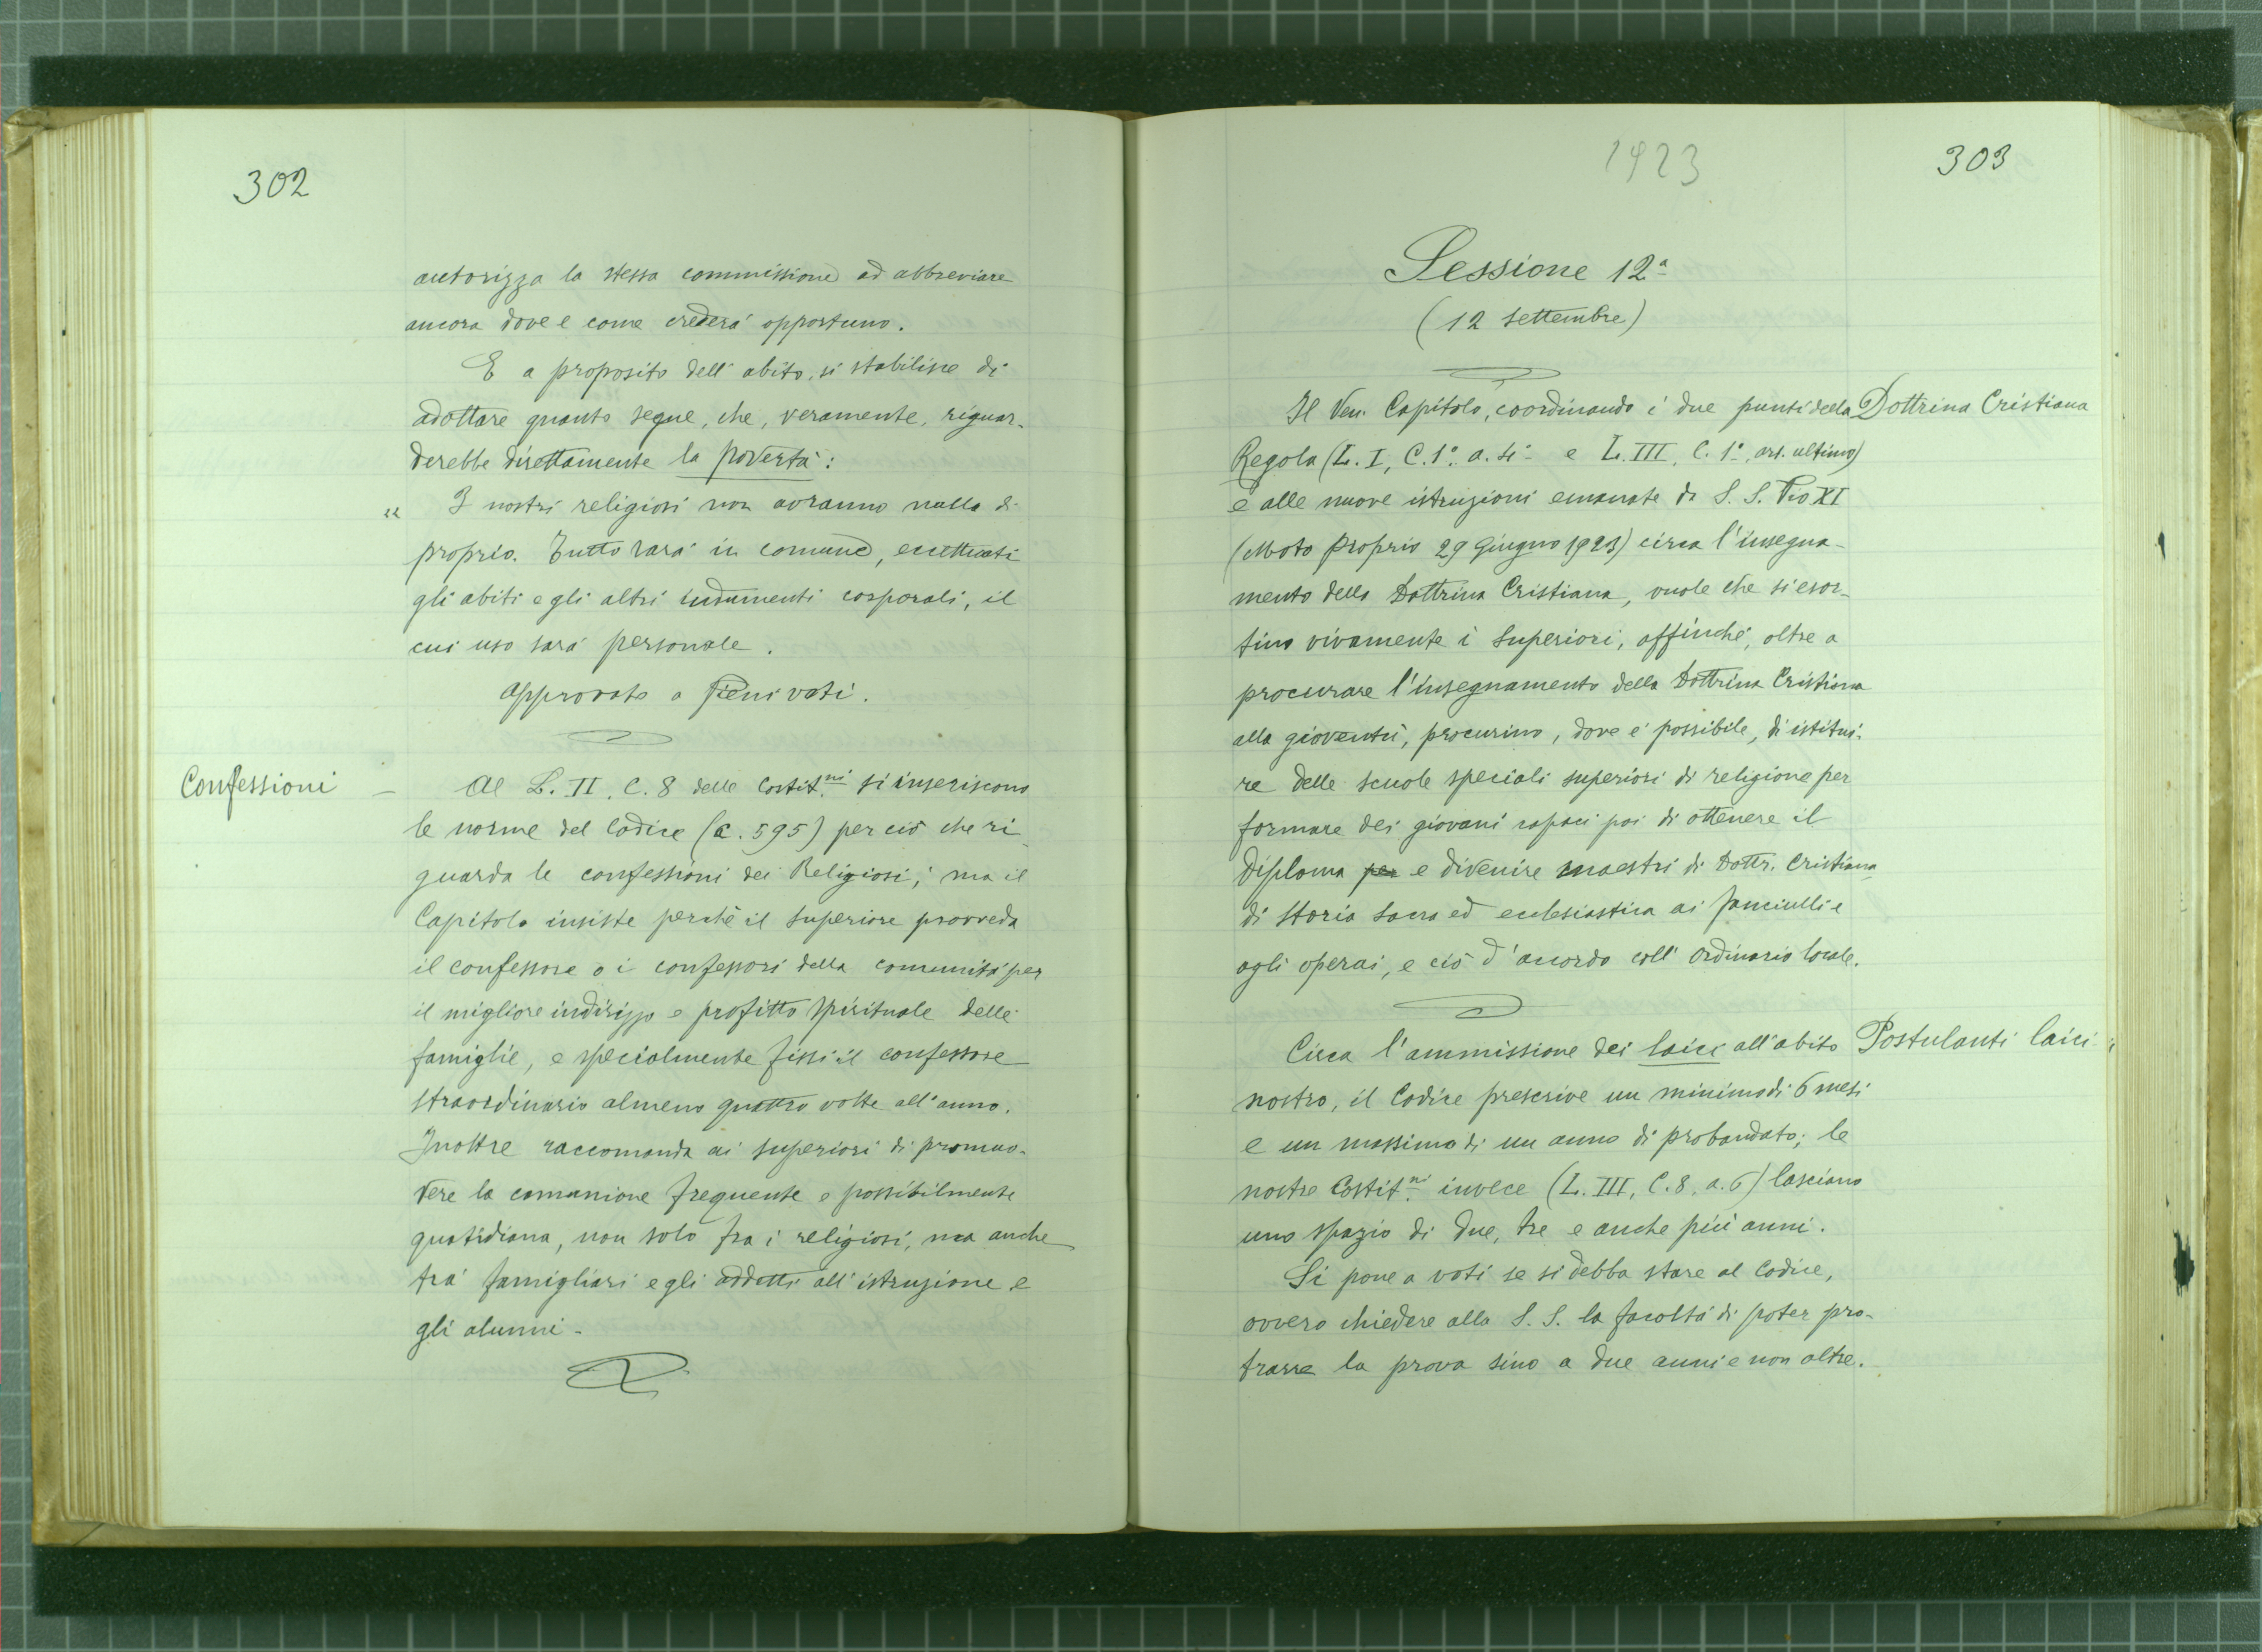 302
autorizza la stessa commissione ad abbreviare
ancora dove e come crederà opportuno.
E a proposito dell'abito, si stabilisce di
adottare quanto segue, che, veramente, riguar-
derebbe direttamente la povertà:
" I nostri religiosi non avranno nulla di
proprio. Tutto sarà in comune, eccettuati
gli abiti e gli altri indumenti corporali, il
cui uso sarà personale.
Approvato a pieni voti.
Confessioni – Al L. II. C. 8 delle Costit.ni si inseriscono
le norme del Codice (c. 595) per ciò che ri-
guarda le confessioni dei Religiosi; ma il
Capitolo insiste perchè il Superiore provveda
il confessore o i confessori della comunità per
il migliore indirizzo e profitto spirituale delle
famiglie, e specialmente fissi il confessore
straordinario almeno quattro volte all'anno.
Inoltre raccomanda ai superiori di promuo-
vere la comunione frequente e possibilmente
quotidiana, non solo fra i religiosi, ma anche
tra' famigliari e gli addetti all'istruzione e
gli alunni -
1923
303
Sessione 12ª
(12 Settembre)
Il Ven. Capitolo, coordinando i due punti della Dottrina Cristiana
Regola (L. I, C. 1º. a. 4º e L. III, C. 1º, art. ultimo)
e alle nuove istruzioni emanate di S. S. Pio XI
(Moto Proprio 29 Giugno 1923) circa l'insegna-
mento della Dottrina Cristiana, vuole che si esor-
tino vivamente i Superiori, affinchè, oltre a
procurare l'insegnamento della Dottrina Cristiana
alla gioventù, procurino, dove è possibile, di istitui-
re delle scuole speciali superiori di religione per
formare dei giovani capaci poi di ottenere il
Diploma per e divenire maestri di Dottr. Cristiana
di Storia Sacra ed ecclesiastica ai fanciulli e
agli operai, e ciò d'accordo coll'Ordinario locale.
Circa l'ammissione dei laici all'abito Postulanti laici
nostro, il Codice prescrive un minimo di 6 mesi
e un massimo di un anno di probandato; le
nostre Costit.ni invece (L. III, C. 8, a. 6) lasciano
uno spazio di due, tre e anche più anni.
Si pone a voti se si debba stare al Codice,
ovvero chiedere alla S. S. la facoltà di poter pro-
trarre la prova sino a due anni e non oltre.